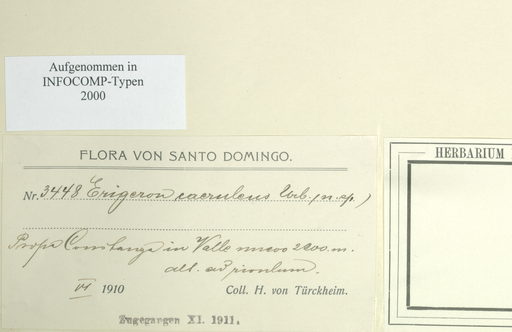 Aufgenommen in
INFOCOMP-Typen
2000
FLORA VON SANTO DOMINGO.
Nr. 3448 Erigeron caeruleus Urb. (n. sp.)
Prope Constanza in Valle nuevo 2200 m.
alt. ad rivulum.
VI 1910 Coll. H. von Türckheim.
Zugegangen XI. 1911.
HERBARIUM